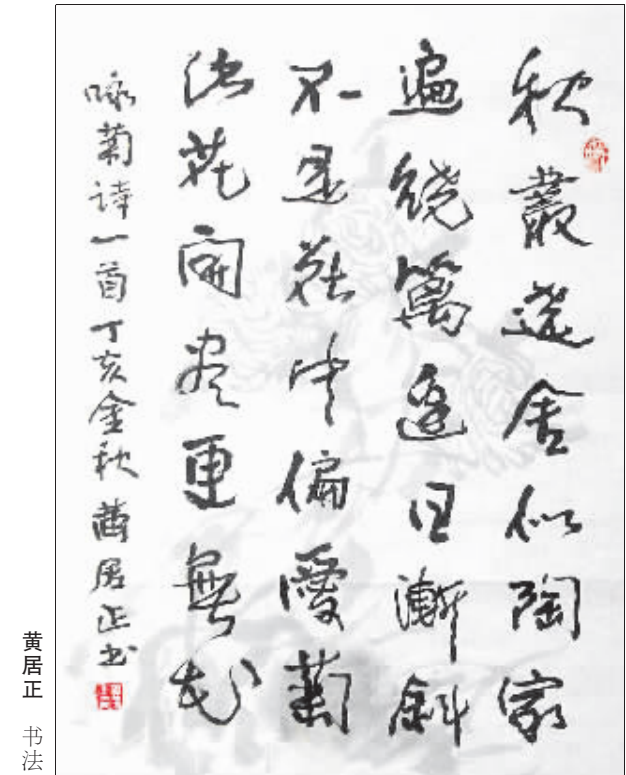 秋叢遶舍似陶家
遍繞篱邊日漸斜
不是花中偏愛菊
此花開尽更無花
咏菊诗一首丁亥金秋黄居正书
黄居正 书法